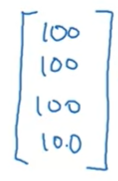 100
100
100
10.0